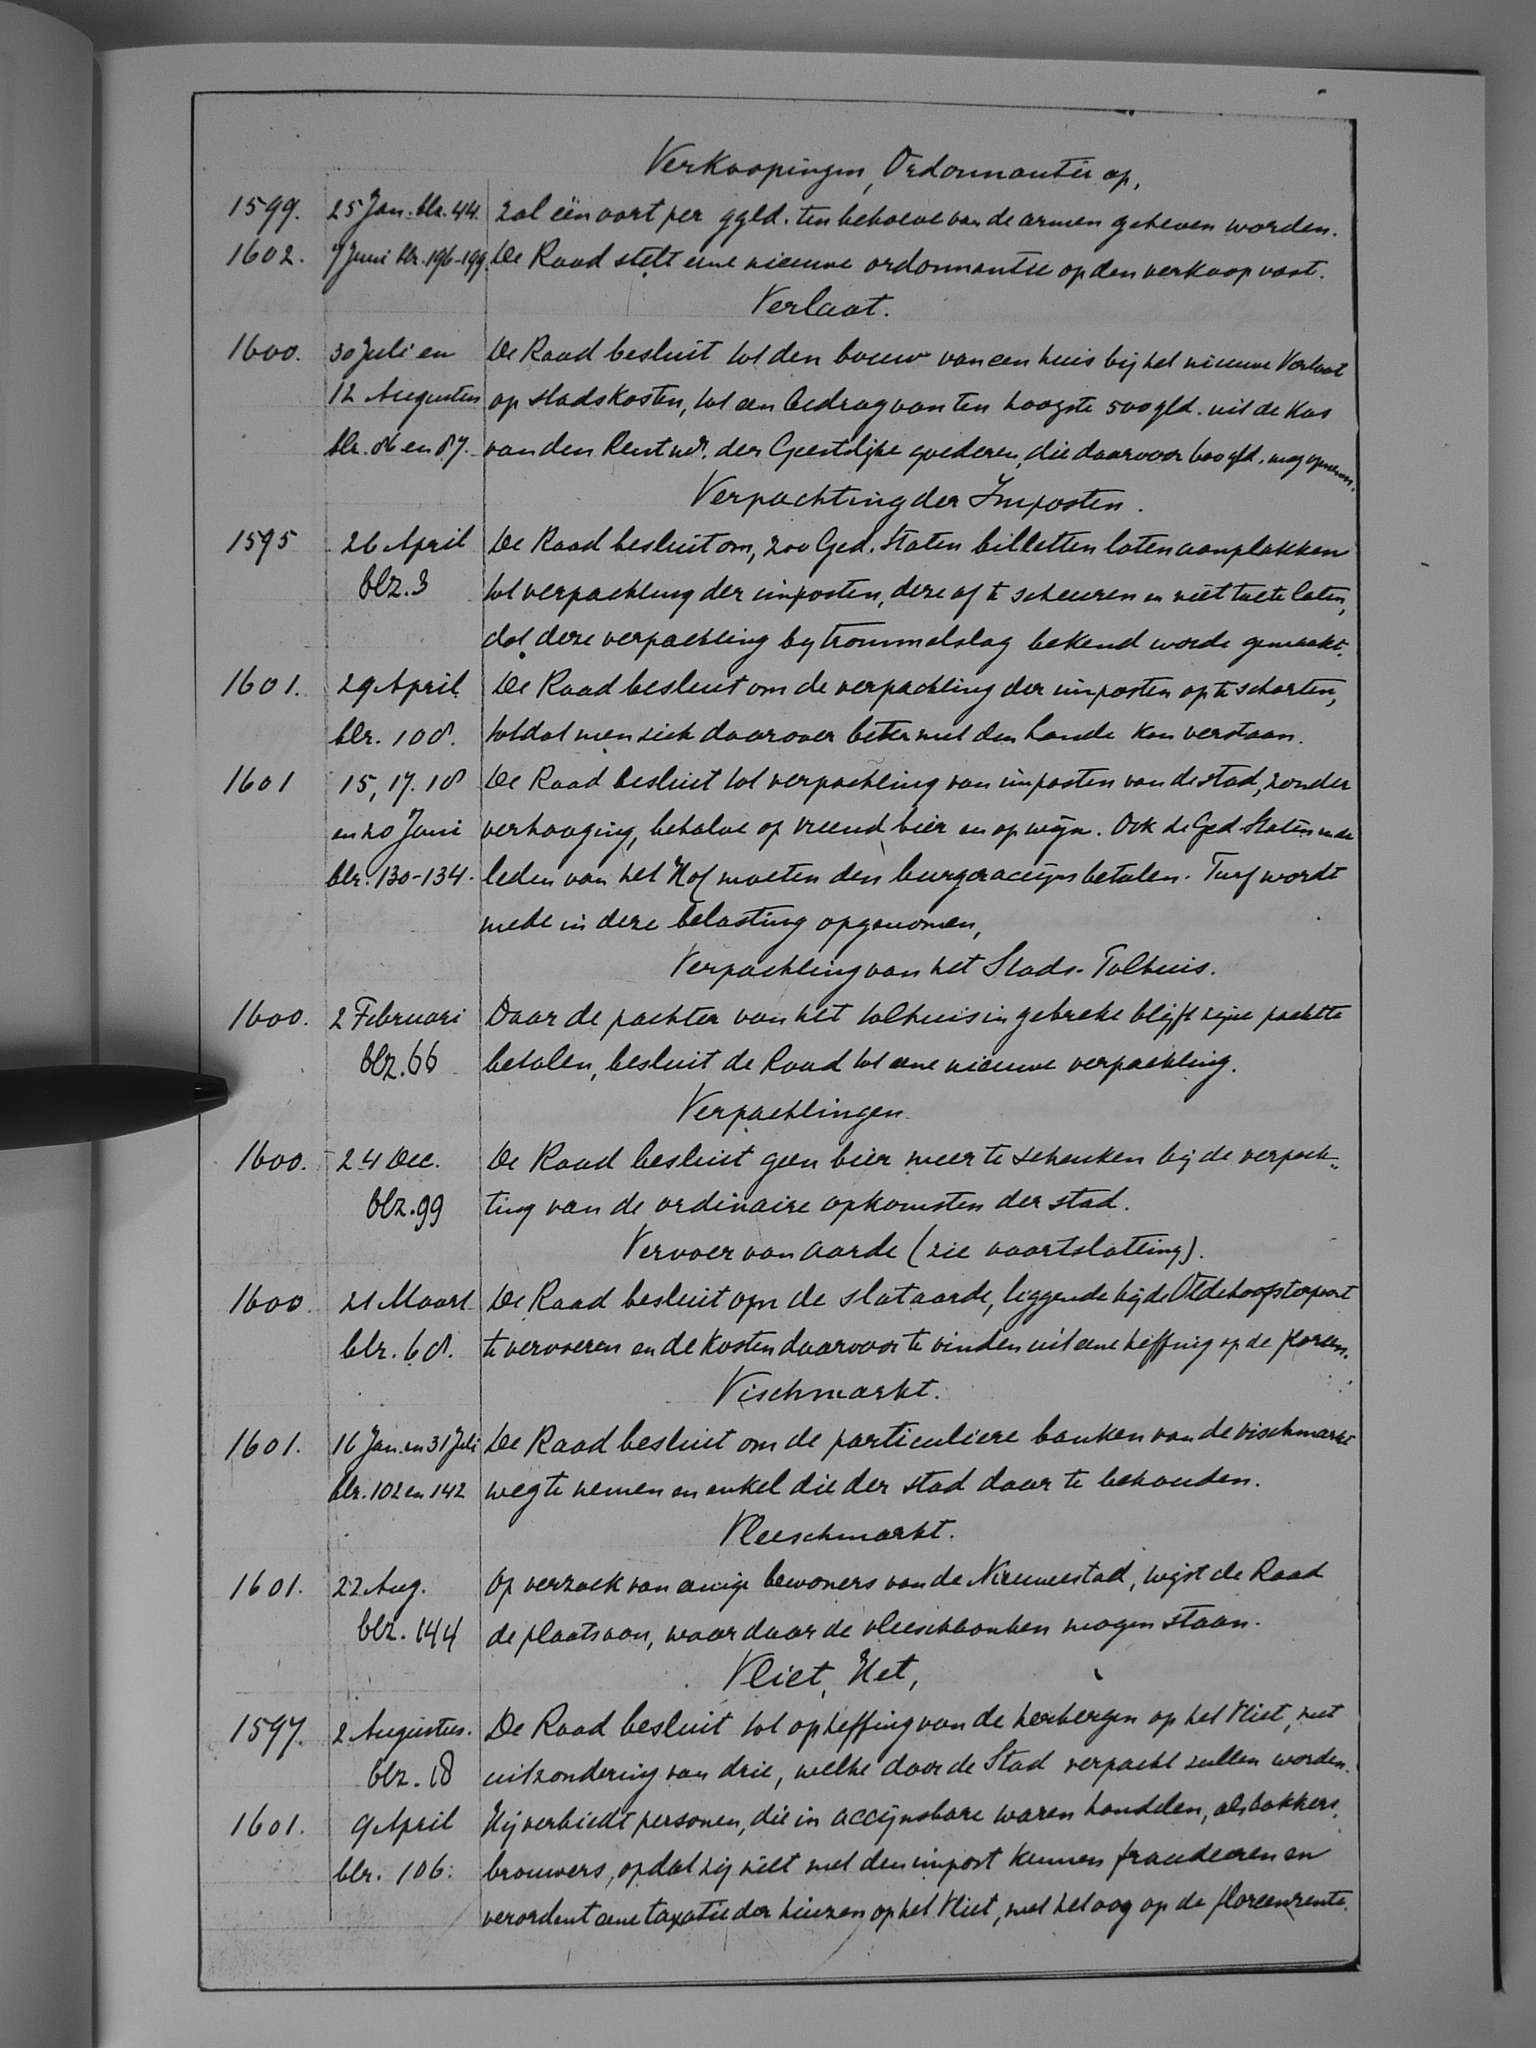 Verkoopingen, Ordonnantie op,
1599. 25 Jan. blz. 44. zal één oort per ggld. ten behoeve van de armen geheven worden.
1602. 7 Juni blz. 196-199. De Raad stelt eene nieuwe ordonnantie op den verkoop vast.
Verlaat.
1600. 30 Juli en De Raad besluit tot den bouw van een huis bij het nieuwe Verlaat
12 Augustus op stadskosten, tot een bedrag van ten hoogste 500 gld. uit de Kas
blz. 86 en 87. van den Rentmr. der Geestelijke goederen, die daarvoor 600 gld. mag opnemen.
Verpachting der Imposten.
1595 26 April De Raad besluit om, zoo Ged. Staten billetten laten aanplakken
blz. 3 tot verpachting der imposten, deze af te scheuren en niet toe te laten,
dat deze verpachting bij trommelslag bekend worde gemaakt.
1601. 29 April De Raad besluit om de verpachting der imposten op te schorten,
blz. 108. totdat men zich daarover beter met den Lande kan verstaan.
1601 15, 17. 18 De Raad besluit tot verpachting van imposten van de stad, zonder
en 20 Juni verhooging, behalve op vreemd bier en op wijn. Ook de Ged Staten en de
blz. 130-134. leden van het Hof moeten den burgeraccijns betalen. Turf wordt
mede in deze belasting opgenomen,
Verpachting van het Stads-Tolhuis.
1600. 2 Februari Daar de pachter van het tolhuis in gebreke blijft zijne pacht te
blz. 66 betalen, besluit de Raad tot eene nieuwe verpachting.
Verpachtingen.
1600. 24 Dec. De Raad besluit geen bier meer te schenken bij de verpach-
blz. 99 ting van de ordinaire opkomsten der stad.
Vervoer van aarde (zie vaartslatting).
1600. 21 Maart De Raad besluit om de slataarde, liggende bij de Oldehoofsterpoort
blz. 68. te vervoeren en de kosten daarvoor te vinden uit eene heffing op de floreen.
Vischmarkt.
1601. 16 Jan. en 31 Juli De Raad besluit om de particuliere banken van de vischmarkt
blz. 102 en 142 weg te nemen en enkel die der stad daar te behouden.
Vleeschmarkt.
1601. 22 Aug. Op verzoek van eenige bewoners van de Nieuwestad, wijst de Raad
blz. 144 de plaats aan, waar daar de vleeschbanken mogen staan.
Vliet, Het,
1597. 2 Augustus. De Raad besluit tot opheffing van de herbergen op het Vliet, met
blz. 18 uitzondering van drie, welke door de Stad verpacht zullen worden.
1601. 9 April Hij verbiedt personen, die in accijnsbare waren handelen, als bakkers,
blz. 106. brouwers, opdat zij niet met den impost kunnen fraudeeren en
verordent eene taxatie der huizen op het Vliet, met het oog op de floreenrente.